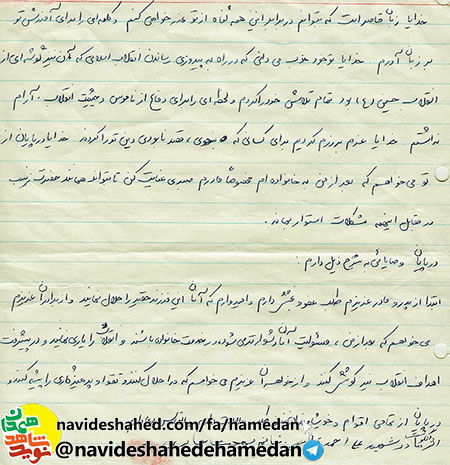 خدایا زبان قاصر است که بتوانم در برابر این همه گناه از تو عذرخواهی کنم و کلمه‌ای را برای آمرزش تو
بر زبان آورم خدایا تو خود خوب می دانی که در راه به پیروزی رساندن انقلاب اسلامی که آن نیز گوشه‌ای از
انقلاب حسین (ع) بود تمام تلاش خود را کردم و لحظه‌ای را برای دفاع از ناموس و حیثیت انقلاب آرام
نداشتم خدایا عزم نبرد کردیم برای کسانی که قصد نابودی دین تو را کردند خدایا در پایان از
تو می خواهم که بعد از من به خانواده ام مخصوصاً مادرم صبری عنایت کن تا بتواند همانند حضرت زینب
در مقابل اینهمه مشکلات استوار بماند.
در پایان وصایائی به شرح ذیل دارم:
ابتدا از پدر و مادر عزیزم طلب عفو و بخشش دارم و امیدوارم که آنان این فرزند حقیر را حلال نمایند و از برادران عزیزم
می خواهم که بعد از من، مسئولیت آنان دشوارتر می شود، در خدمت خانواده باشند و انقلاب را یاری نمایند و در پیشرفت
اهداف انقلاب نیز کوشش کنند و از خواهران عزیزم می خواهم که مرا حلال کنند و تقوا و پرهیزگاری را پیشه کنند و
در پایان از تمامی اقوام و
navideshahed.com/fa/hamedan
@navideshahedehamedan
نوید شاهد همدان